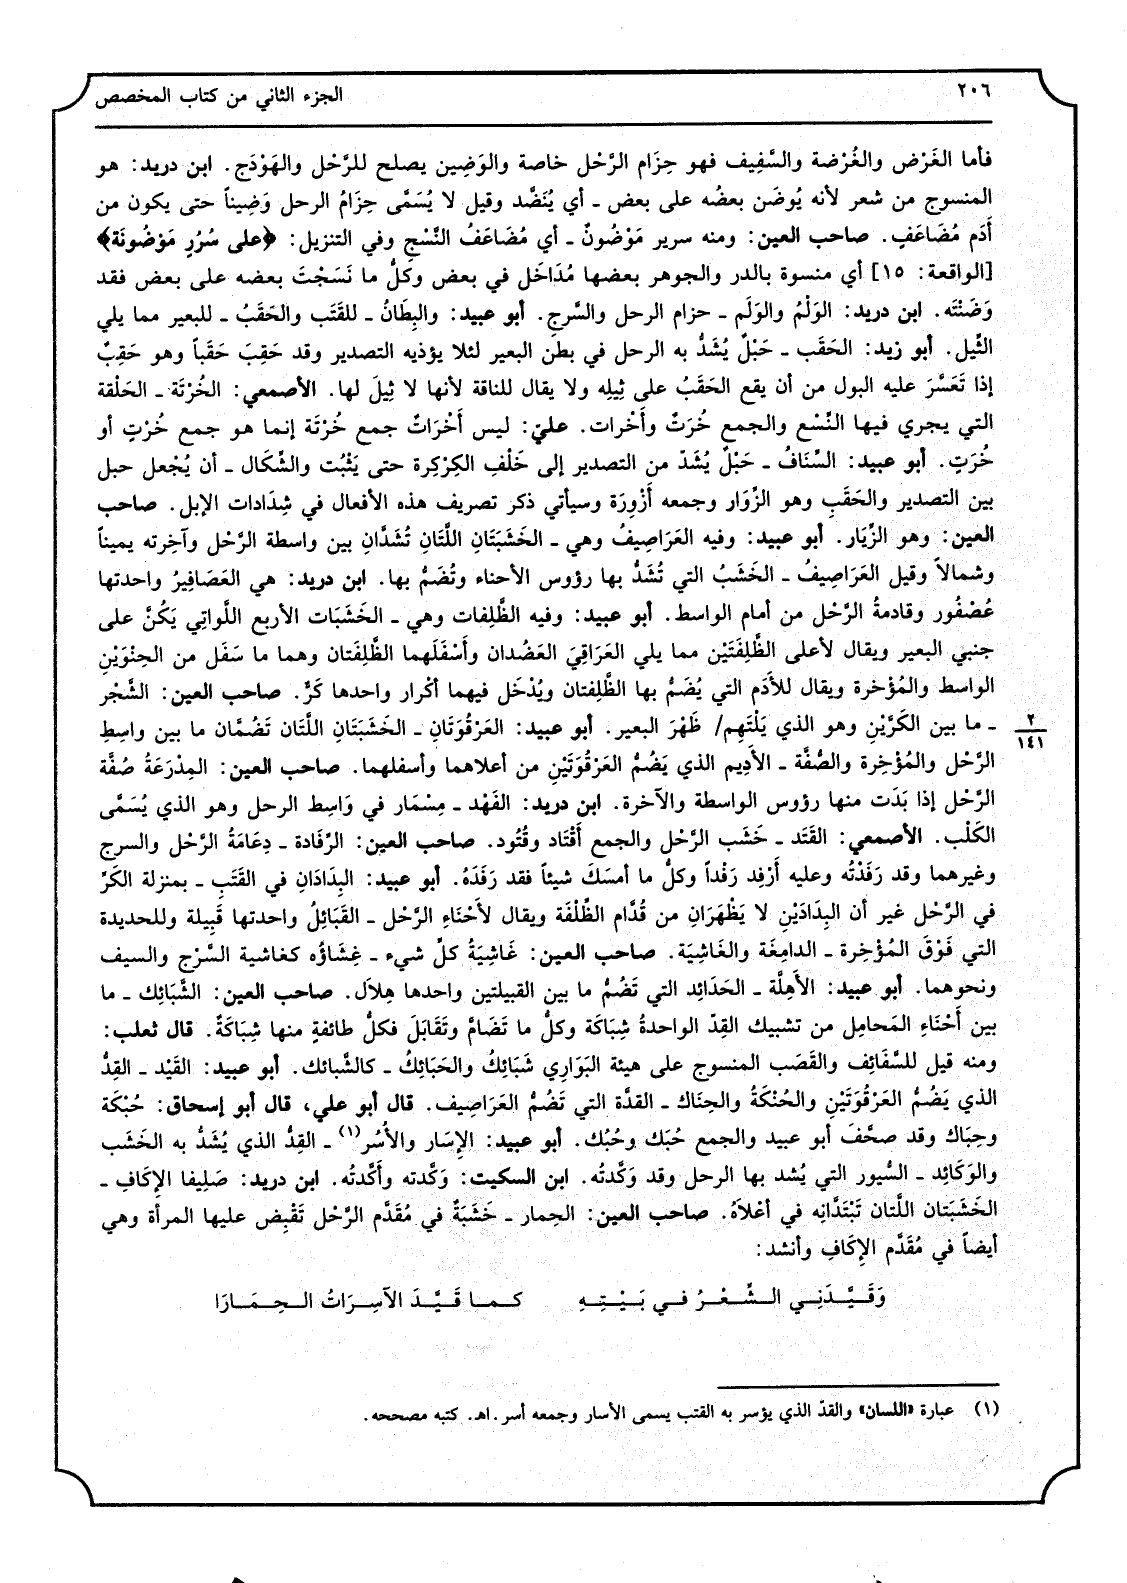 ٢٠٦ الجزء الثاني من كتاب المخصص
فأما الغَرْض والغُرْضة والسَّفِيف فهو حِزَام الرَّحْل خاصة والوَضِين يصلح للرَّحْل والهَوْدَج. ابن دريد: هو
المنسوج من شعر لأنه يُوضَن بعضُه على بعض ـ أي يُنَضَّد وقيل لا يُسَمَّى حِزَامُ الرحل وَضِيناً حتى يكون من
أَدَم مُضَاعَفٍ. صاحب العين: ومنه سرير مَوْضُونٌ ـ أي مُضَاعَفُ النَّسْجِ وفي التنزيل: ﴿على سُرُرٍ مَوْضُونَة﴾
[الواقعة: ١٥] أي منسوة بالدر والجوهر بعضها مُدَاخَل في بعض وكلُّ ما نَسَجْتَ بعضه على بعض فقد
وَضَنْتَه. ابن دريد: الوَلْمُ والوَلَم ـ حزام الرحل والسَّرج. أبو عبيد: والبِطَانُ ـ للقَتَب والحَقَبُ ـ للبعير مما يلي
الثِّيل. أبو زيد: الحَقَب ـ حَبْلٌ يُشَدُّ به الرحل في بطن البعير لئلا يؤذيه التصدير وقد حَقِبَ حَقَباً وهو حَقِبٌ
إذا تَعَسَّرَ عليه البول من أن يقع الحَقَبُ على ثِيلِه ولا يقال للناقة لأنها لا ثِيلَ لها. الأصمعي: الخُرْتَة ـ الحَلْقة
التي يجري فيها النِّسْع والجمع خُرَتٌ وأَخْرات. عليّ: ليس أَخْرَاتٌ جمع خُرْتَة إنما هو جمع خُرْتٍ أو
خُرَتٍ. أبو عبيد: السِّنَافُ ـ حَبْلٌ يُشَدّ من التصدير إلى خَلْفِ الكِرْكِرة حتى يَثْبُت والشِّكَال ـ أن يُجْعل حبل
بين التصدير والحَقَبِ وهو الزِّوَار وجمعه أَزْوِرَة وسيأتي ذكر تصريف هذه الأفعال في شِدَادات الإبل. صاحب
العين: وهو الزِّيَار. أبو عبيد: وفيه العَرَاصِيفُ وهي ـ الخَشَبَتَانِ اللَّتَانِ تُشَدَّانِ بين واسطة الرَّحْل وآخِرته يميناً
وشمالاً وقيل العَرَاصِيفُ ـ الخَشَبُ التي تُشَدُّ بها رؤوس الأحناء وتُضَمُّ بها. ابن دريد: هي العَصَافِيرُ واحدتها
عُصْفُور وقادمةُ الرَّحْل من أمام الواسط. أبو عبيد: وفيه الظَّلِفات وهي ـ الخَشَبَات الأربع اللَّواتِي يَكُنَّ على
جنبي البعير ويقال لأعلى الظَّلِفَتَيْن مما يلي العَرَاقِيَ العَضُدان وأَسْفَلَهما الظَّلِفَتان وهما ما سَفَل من الحِنْوَيْنِ
الواسط والمُؤْخرة ويقال للأَدَم التي يُضَمُّ بها الظَّلِفتان ويُدْخَل فيهما أكْرار واحدها كَرٌّ. صاحب العين: الشَّجْر
ـ ما بين الكَرَّيْنِ وهو الذي يَلْتَهِم/ ظَهْرَ البعير. أبو عبيد: العَرْقُوَتَانِ ـ الخَشَبَتَانِ اللَّتان تَضُمَّان ما بين واسِطِ
٢
١٤١
الرَّحْل والمُؤْخِرة والصُّفَّة ـ الأَدِيم الذي يَضُمُّ العَرْقُوَتَيْنِ من أعلاهما وأسفلهما. صاحب العين: المِدْرَعَةُ صُفَّة
الرَّحْل إذا بَدَت منها رؤوس الواسطة والآخرة. ابن دريد: الفَهْد ـ مِسْمَار في وَاسِط الرحل وهو الذي يُسَمَّى
الكَلْب. الأصمعي: القَتَد ـ خَشَب الرَّحْل والجمع أَقْتَاد وقُتُود. صاحب العين: الرِّفَادة ـ دِعَامَةُ الرَّحْل والسرج
وغيرهما وقد رَفَدْتُه وعليه أَرْفِد رَفْداً وكلُّ ما أمسَكَ شيئاً فقد رَفَدَهُ. أبو عبيد: البِدَادَانِ في القَتَبِ ـ بمنزلة الكَرِّ
في الرَّحْل غير أن البِدَادَيْنِ لا يَظْهَرَانِ من قُدَّام الظَّلِفَة ويقال لأَحْنَاءِ الرَّحْل ـ القَبَائلُ واحدتها قَبِيلة وللحديدة
التي فَوْقَ المُؤْخِرة ـ الدامِغَة والغَاشِيَة. صاحب العين: غَاشِيَةُ كلِّ شيء ـ غِشَاؤُه كغاشية السَّرْج والسيف
ونحوهما. أبو عبيد: الأَهِلَّة ـ الحَدَائد التي تَضُمُّ ما بين القبيلتين واحدها هِلاَل. صاحب العين: الشَّبَائِك ـ ما
بين أَحْنَاءِ المَحامِل من تشبيك القِدّ الواحدةُ شِبَاكَة وكلُّ ما تَضَامَّ وتَقَابَلَ فكلُّ طائفةٍ منها شِبَاكَةٌ. قال ثعلب:
ومنه قيل للسَّفَائِف والقَصَب المنسوج على هيئة البَوَارِي شَبَائِكُ والحَبَائِكُ ـ كالشَّبائك. أبو عبيد: القَيْد ـ القِدُّ
الذي يَضُمُّ العَرْقُوَتَيْنِ والحُنْكَةُ والحِنَاك ـ القدَّة التي تَضُمُّ العَرَاصِيف. قال أبو علي، قال أبو إسحاق: حُبْكَة
وحِبَاك وقد صحَّفَ أبو عبيد والجمع حُبَك وحُبُك. أبو عبيد: الإِسَار والأُسُر(١) ـ القِدُّ الذي يُشَدُّ به الخَشَب
والوَكَائِد ـ السُّيور التي يُشد بها الرحل وقد وَكَّدتُه. ابن السكيت: وَكَّدته وأَكَّدتُه. ابن دريد: صَلِيفا الإِكَافِ ـ
الخَشَبَتان اللَّتان تَبْتَدَّانِه في أعْلاَهُ. صاحب العين: الحِمار ـ خَشَبَةٌ في مُقَدَّم الرَّحْل تَقْبِض عليها المرأة وهي
أيضاً في مُقَدَّم الإِكَافِ وأنشد:
وَقَيَّدَنِي الشِّعْرُ فِي بَيْتِهِ كما قَيَّدَ الآسِرَاتُ الحِمَارَا
(١) عبارة «اللسان» والقدّ الذي يؤسر به القتب يسمى الأسار وجمعه أسر. اهـ. كتبه مصححه.